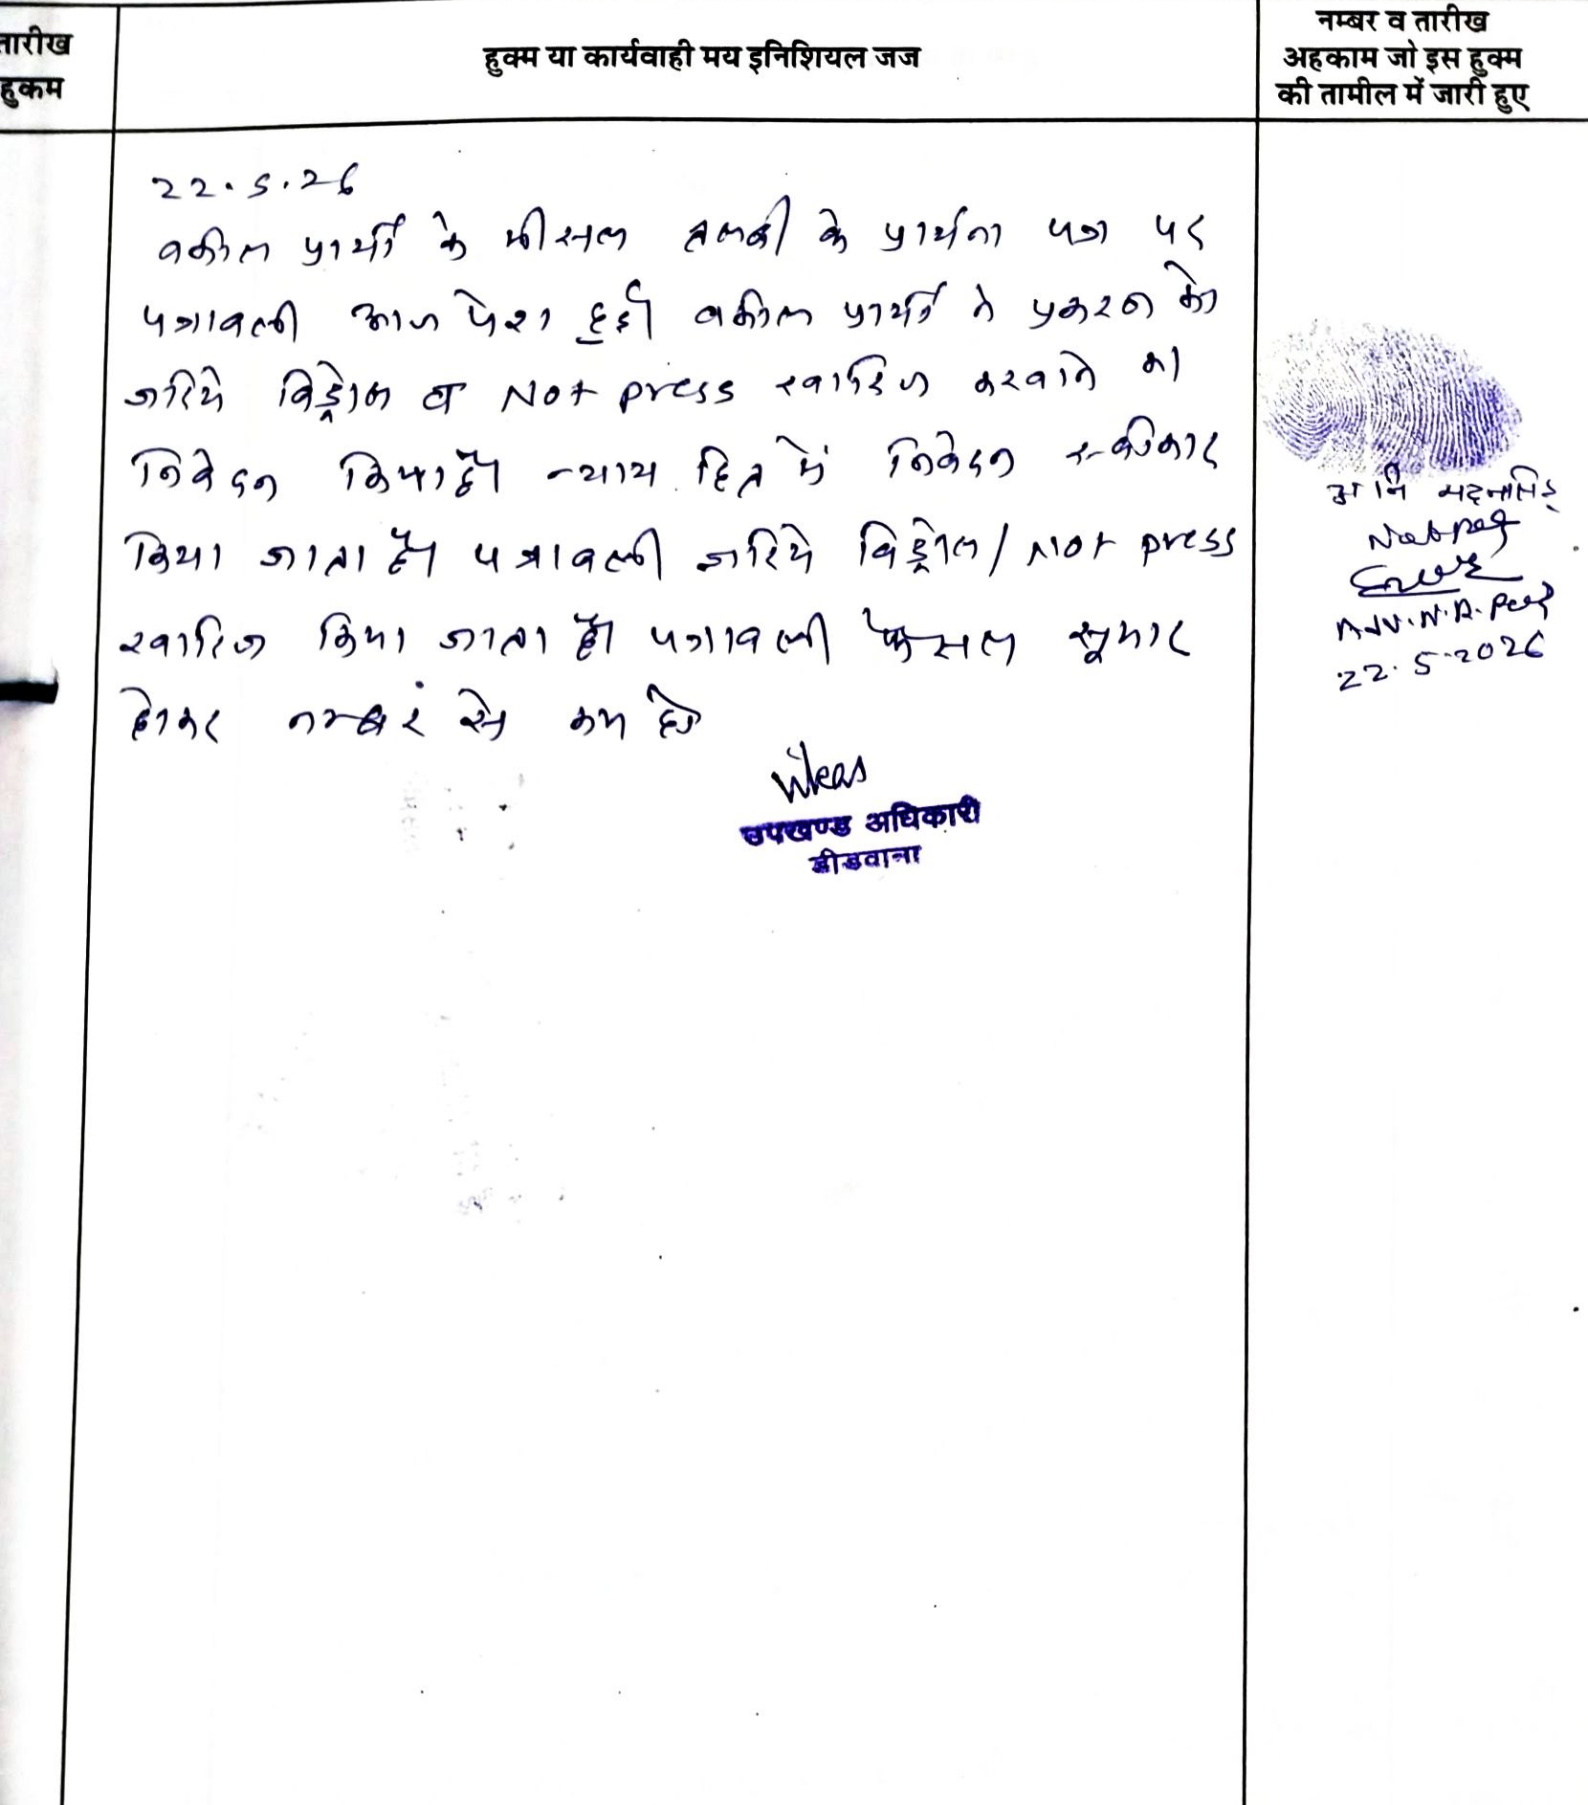 तारीख
हुकम
हुक्म या कार्यवाही मय इनिशियल जज
नम्बर व तारीख
अहकाम जो इस हुक्म
की तामील में जारी हुए
22.5.26
वकील प्रार्थी के मीसल तलबी के प्रार्थना पत्र पर
पत्रावली आज पेश हुई। वकील प्रार्थी ने प्रकरण को
जरिये विड्रोल व Not press खारिज करवाने का
निवेदन किया है। न्याय हित में निवेदन स्वीकार
किया जाता है। पत्रावली जरिये विड्रोल/Not press
खारिज किया जाता है। पत्रावली फैसल सूमार
होकर नम्बर से कम हो
Vikas
उपखण्ड अधिकारी
डीडवाना
नि मदनसिंह
Not press
Adv. N.R.
22.5.2026